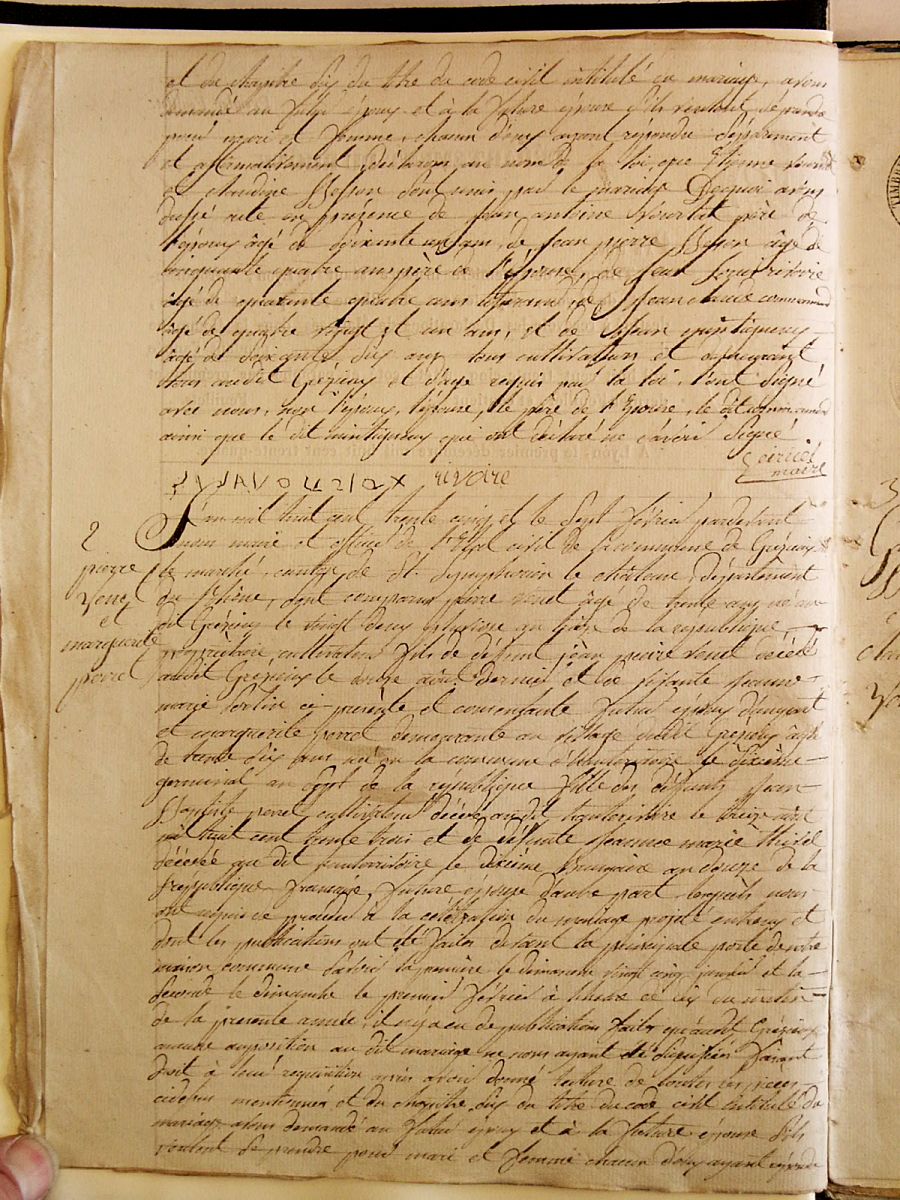 et du chapitre six du titre du code civil intitulé du mariage, avons
demandé au futur époux et à la future épouse s'ils veulent se prendre
pour mari et femme, chacun d'eux ayant répondu séparément
et affirmativement, déclarons au nom de la loi, que Etienne
et claudine sont unis par le mariage Dequoi avons
dressé acte en présence de Jean antoine père de
l'époux âgé de soixante un an, de Jean pierre âgé de
cinquante quatre ans père de l'épouse, de rivoire
âgé de quarante quatre ans de Jean claude
âgé de quatre vingt et un ans, et de
âgé de soixante six ans tous cultivateurs et demeurant
audit Grézieux et d'age requis par la loi, l'ont signé
avec nous, non l'époux, l'épouse, le père de l'Epouse, le dit
ainsi que le dit qui ont déclaré ne savoir signer
maire
rivoire
L'an mil huit cent trente cinq et le sept février pardevant
nous maire et officier de l'état civil de la commune de Grézieux
le marché, canton de St. Symphorien le château, département
du Rhône, sont comparus pierre venet âgé de trente ans né au
dit Grézieux le vingt deux an treize de la république
propriétaire cultivateur fils de défunt jean pierre venet décédé
audit Grézieux le onze avril dernier et de jeanne
marie ci-présente et consentante futur époux d'une part
et marguerite porret demeurante au village dudit Grézieux âgée
de trente six ans née en la commune d'hauterivoire le sixième
germinal an sept de la république fille des défunts Jean
Baptiste porret cultivateur décédé au dit hauterivoire le treize août
mil huit cent trente trois et de défunte Jeanne marie
décédée au dit hauterivoire le brumaire an douze de la
république française, future épouse d'autre part lesquels nous
ont requis de procéder à la célébration du mariage projeté entre eux et
dont les publications ont été faites devant la principale porte de notre
maison commune savoir la première le dimanche vingt cinq janvier et la
seconde le dimanche le premier février à heure de dix du matin
de la présente année, il n'y a eu de publications faites qu'audit Grézieux
aucune opposition au dit mariage ne nous ayant été signifiée faisant
droit à leur requisition après avoir donné lecture de toutes les pièces
cidessus mentionnées et du chapitre six du titre du code civil intitulé du
mariage avons demandé au futur époux et à la future épouse s'ils
veulent se prendre pour mari et femme chacun d'eux ayant répondu
2
pierre
venet
et
marguerite
porret